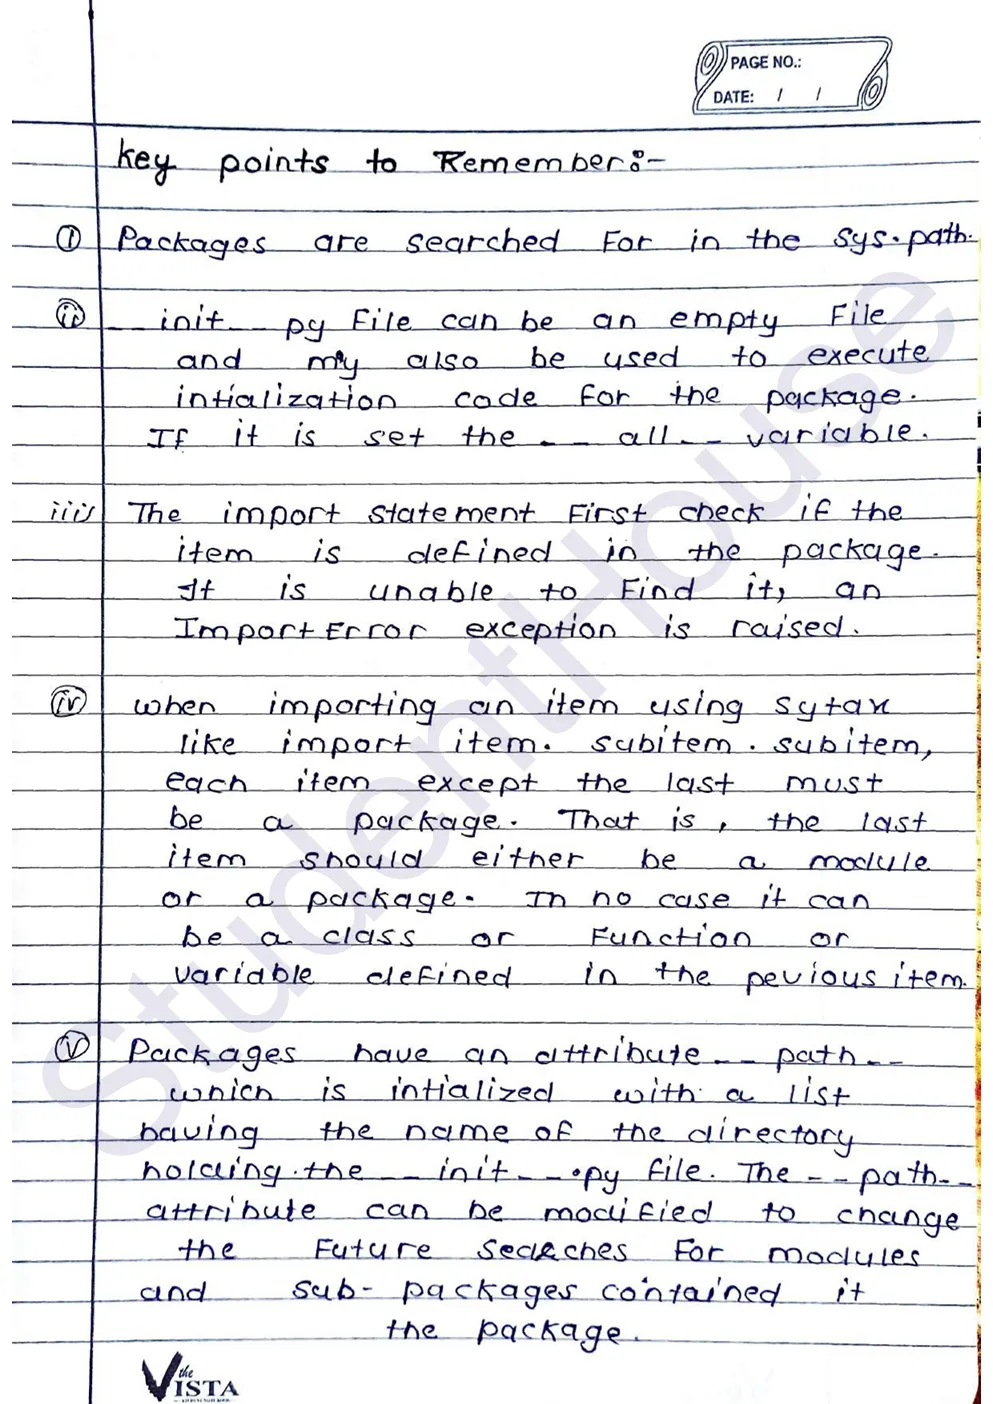 PAGE NO.:
DATE: / /
key points to Remember:-
(i) Packages are searched For in the sys.path.
(ii) __ init __ py File can be an empty File
and my also be used to execute
intialization code for the package.
If it is set the __ all __ variable.
iii) The import statement First check if the
item is defined in the package.
It is unable to Find it, an
ImportError exception is raised.
(iv) when importing an item using sytax
like import item. subitem. subitem,
each item except the last must
be a package. That is, the last
item should either be a module
or a package. In no case it can
be a class or Function or
variable defined in the pevious item.
(v) Packages have an attribute __ path __
which is intialized with a list
having the name of the directory
holding the __ init __ .py file. The __ path __
attribute can be modified to change
the Future searches For modules
and sub-packages contained it
the package.
the VISTA
StudentHouse